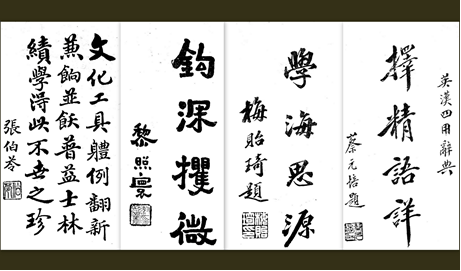 英漢四用辭典
擇精語詳
蔡元培題
學海思源
梅貽琦題
鈎深攫微
黎照寰
文化工具體例翻新
兼餉並飫普益士林
績學淂此不世之珍
張伯苓